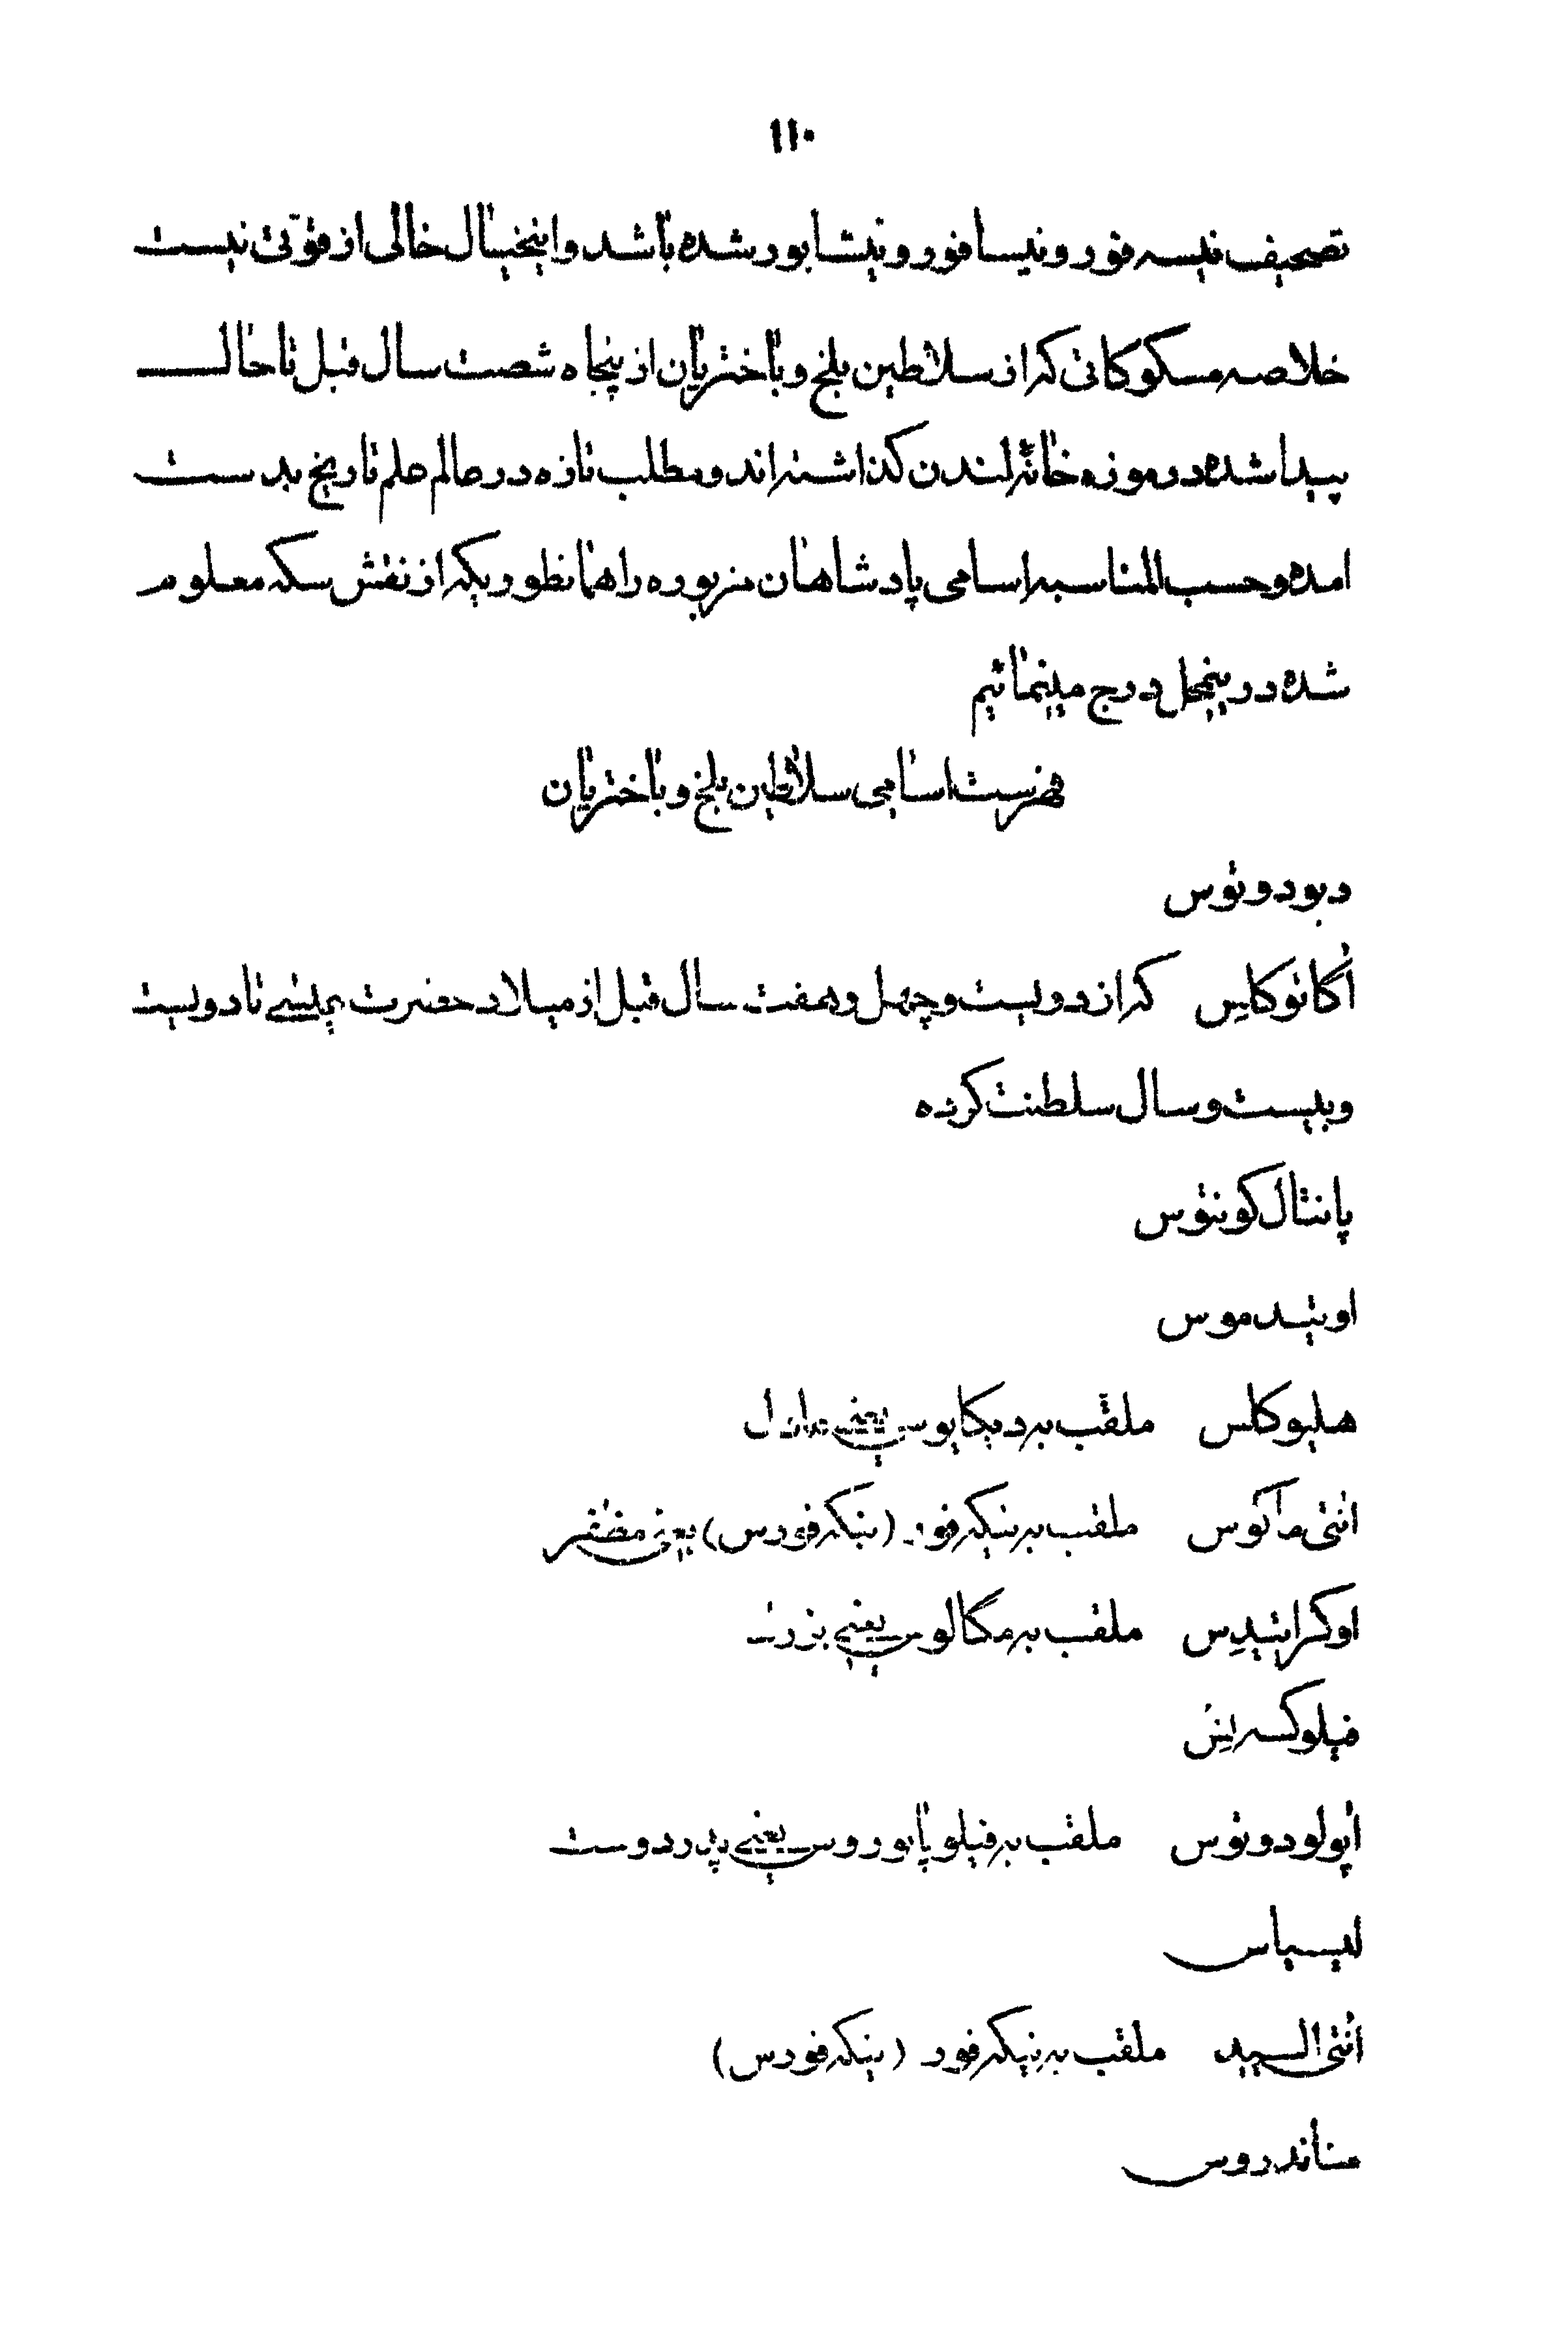 ۱۱۰
تصحیف نیسه فور و نیسافور و نیشابور شده باشد و اینخیال خالی از قوّتی نیست
خلاصه مسکوکاتی که از سلاطین بلخ و باختریان از پنجاه شصت سال قبل تا حال
پیدا شده در موزه خانهٔ لندن گذاشته اند و مطلب تازه در عالم علم تاریخ بدست
امده و حسب المناسبه اسامی پادشاهان مزبوره را همانطوریکه از نقش سکه معلوم
شده در ینمحل درج مینمائیم
فهرست اسامی سلاطین بلخ و باختریان
دیودوتوس
اگاتوکلس که از دویست و چهل و هفت سال قبل از میلاد حضرت عیسی تا دویست
و بیست و سال سلطنت کرده
پانتال کونتوس
اوتیدموس
هلیوکلس ملقب به دیکایوس یعنی عادل
انتی ماکوس ملقب به نیکه فور (نیکه فورس) یعنی مظفر
اوکراتیدس ملقب به مگالوس یعنی بزرگ
فیلوکسه
اپولودوتوس ملقب به فیلوپاتوروس یعنی پدر دوست
لیسیاس
انتی السید ملقب به نیکه فور (نیکه فورس)
مناندروس